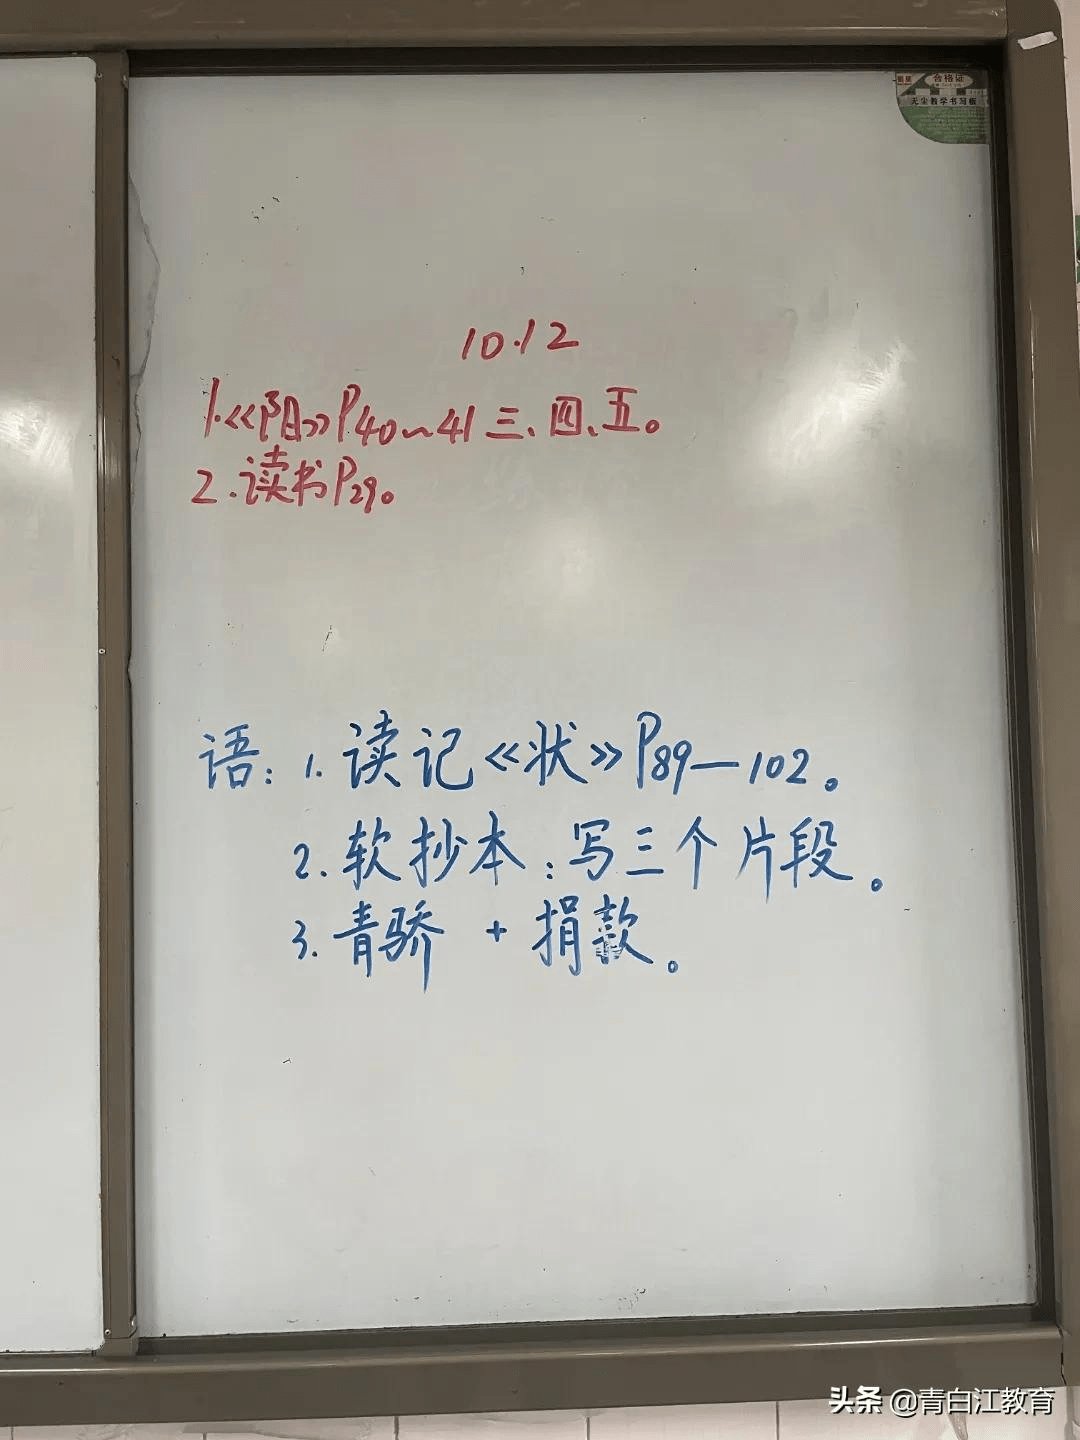 合格证
无尘教学书写板
10.12
1.《阳》P40~41 三、四、五。
2.读书P29。
语：1.读记《状》P89—102。
2.软抄本：写三个片段。
3.青骄 + 捐款。
头条 @青白江教育